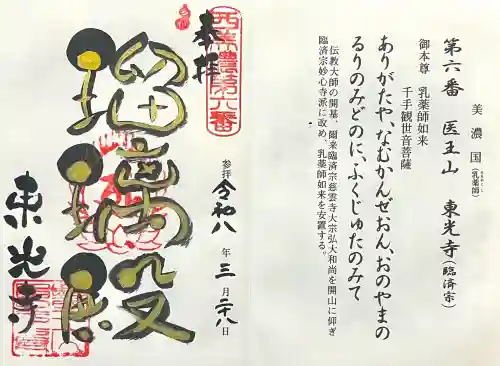 美濃国（乳薬師）
第六番　医王山　東光寺（臨済宗）
御本尊　乳薬師如来
千手観世音菩薩
ありがたや、なむかんぜおん、おのやまの
るりのみどのに、ふくじゅたのみて
伝教大師の開基、爾来臨済宗慈雲寺大宗弘大和尚を開山に仰ぎ
臨済宗妙心寺派に改め、乳薬師如来を安置する。
西美濃第六番
奉拝
参拝 令和八年三月二十八日
瑠璃殿
東光寺